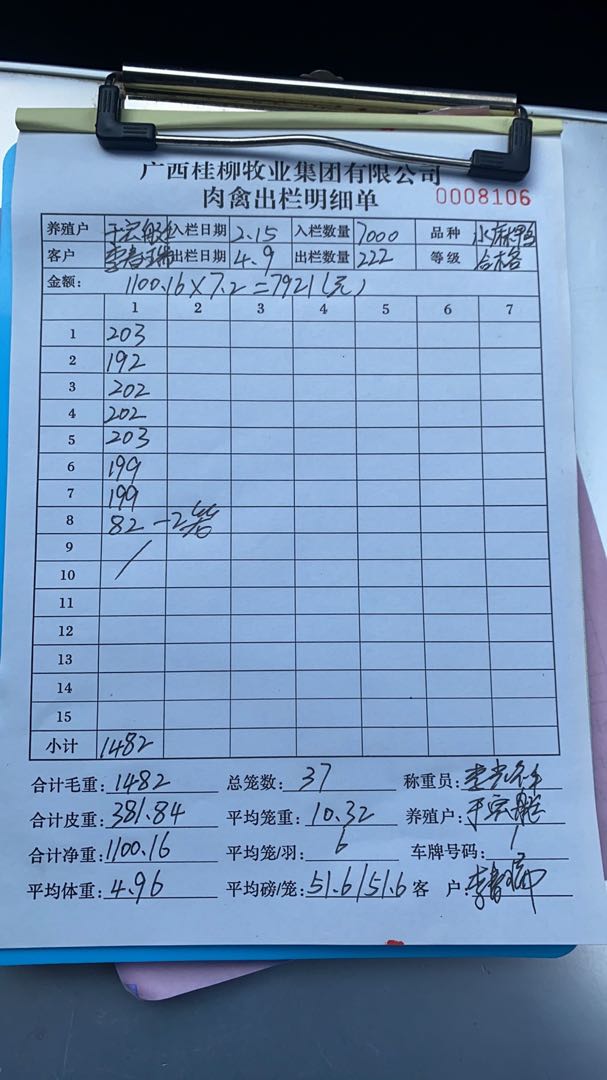 广西桂柳牧业集团有限公司
肉禽出栏明细单 0008106
养殖户 于宏 入栏日期 2.15 入栏数量 7000 品种 水麻鸭
客户 李春瑞 出栏日期 4.9 出栏数量 222 等级 合格
金额: 1100.16×7.2=7921(元)
1 2 3 4 5 6 7
1 203
2 192
3 202
4 202
5 203
6 199
7 199
8 82-2笼
9
10
11
12
13
14
15
小计 1482
合计毛重: 1482 总笼数: 37 称重员:
合计皮重: 381.84 平均笼重: 10.32 养殖户: 于宏
合计净重: 1100.16 平均笼/羽: 6 车牌号码: 1
平均体重: 4.96 平均磅/笼: 51.6/51.6 客 户: 李春瑞